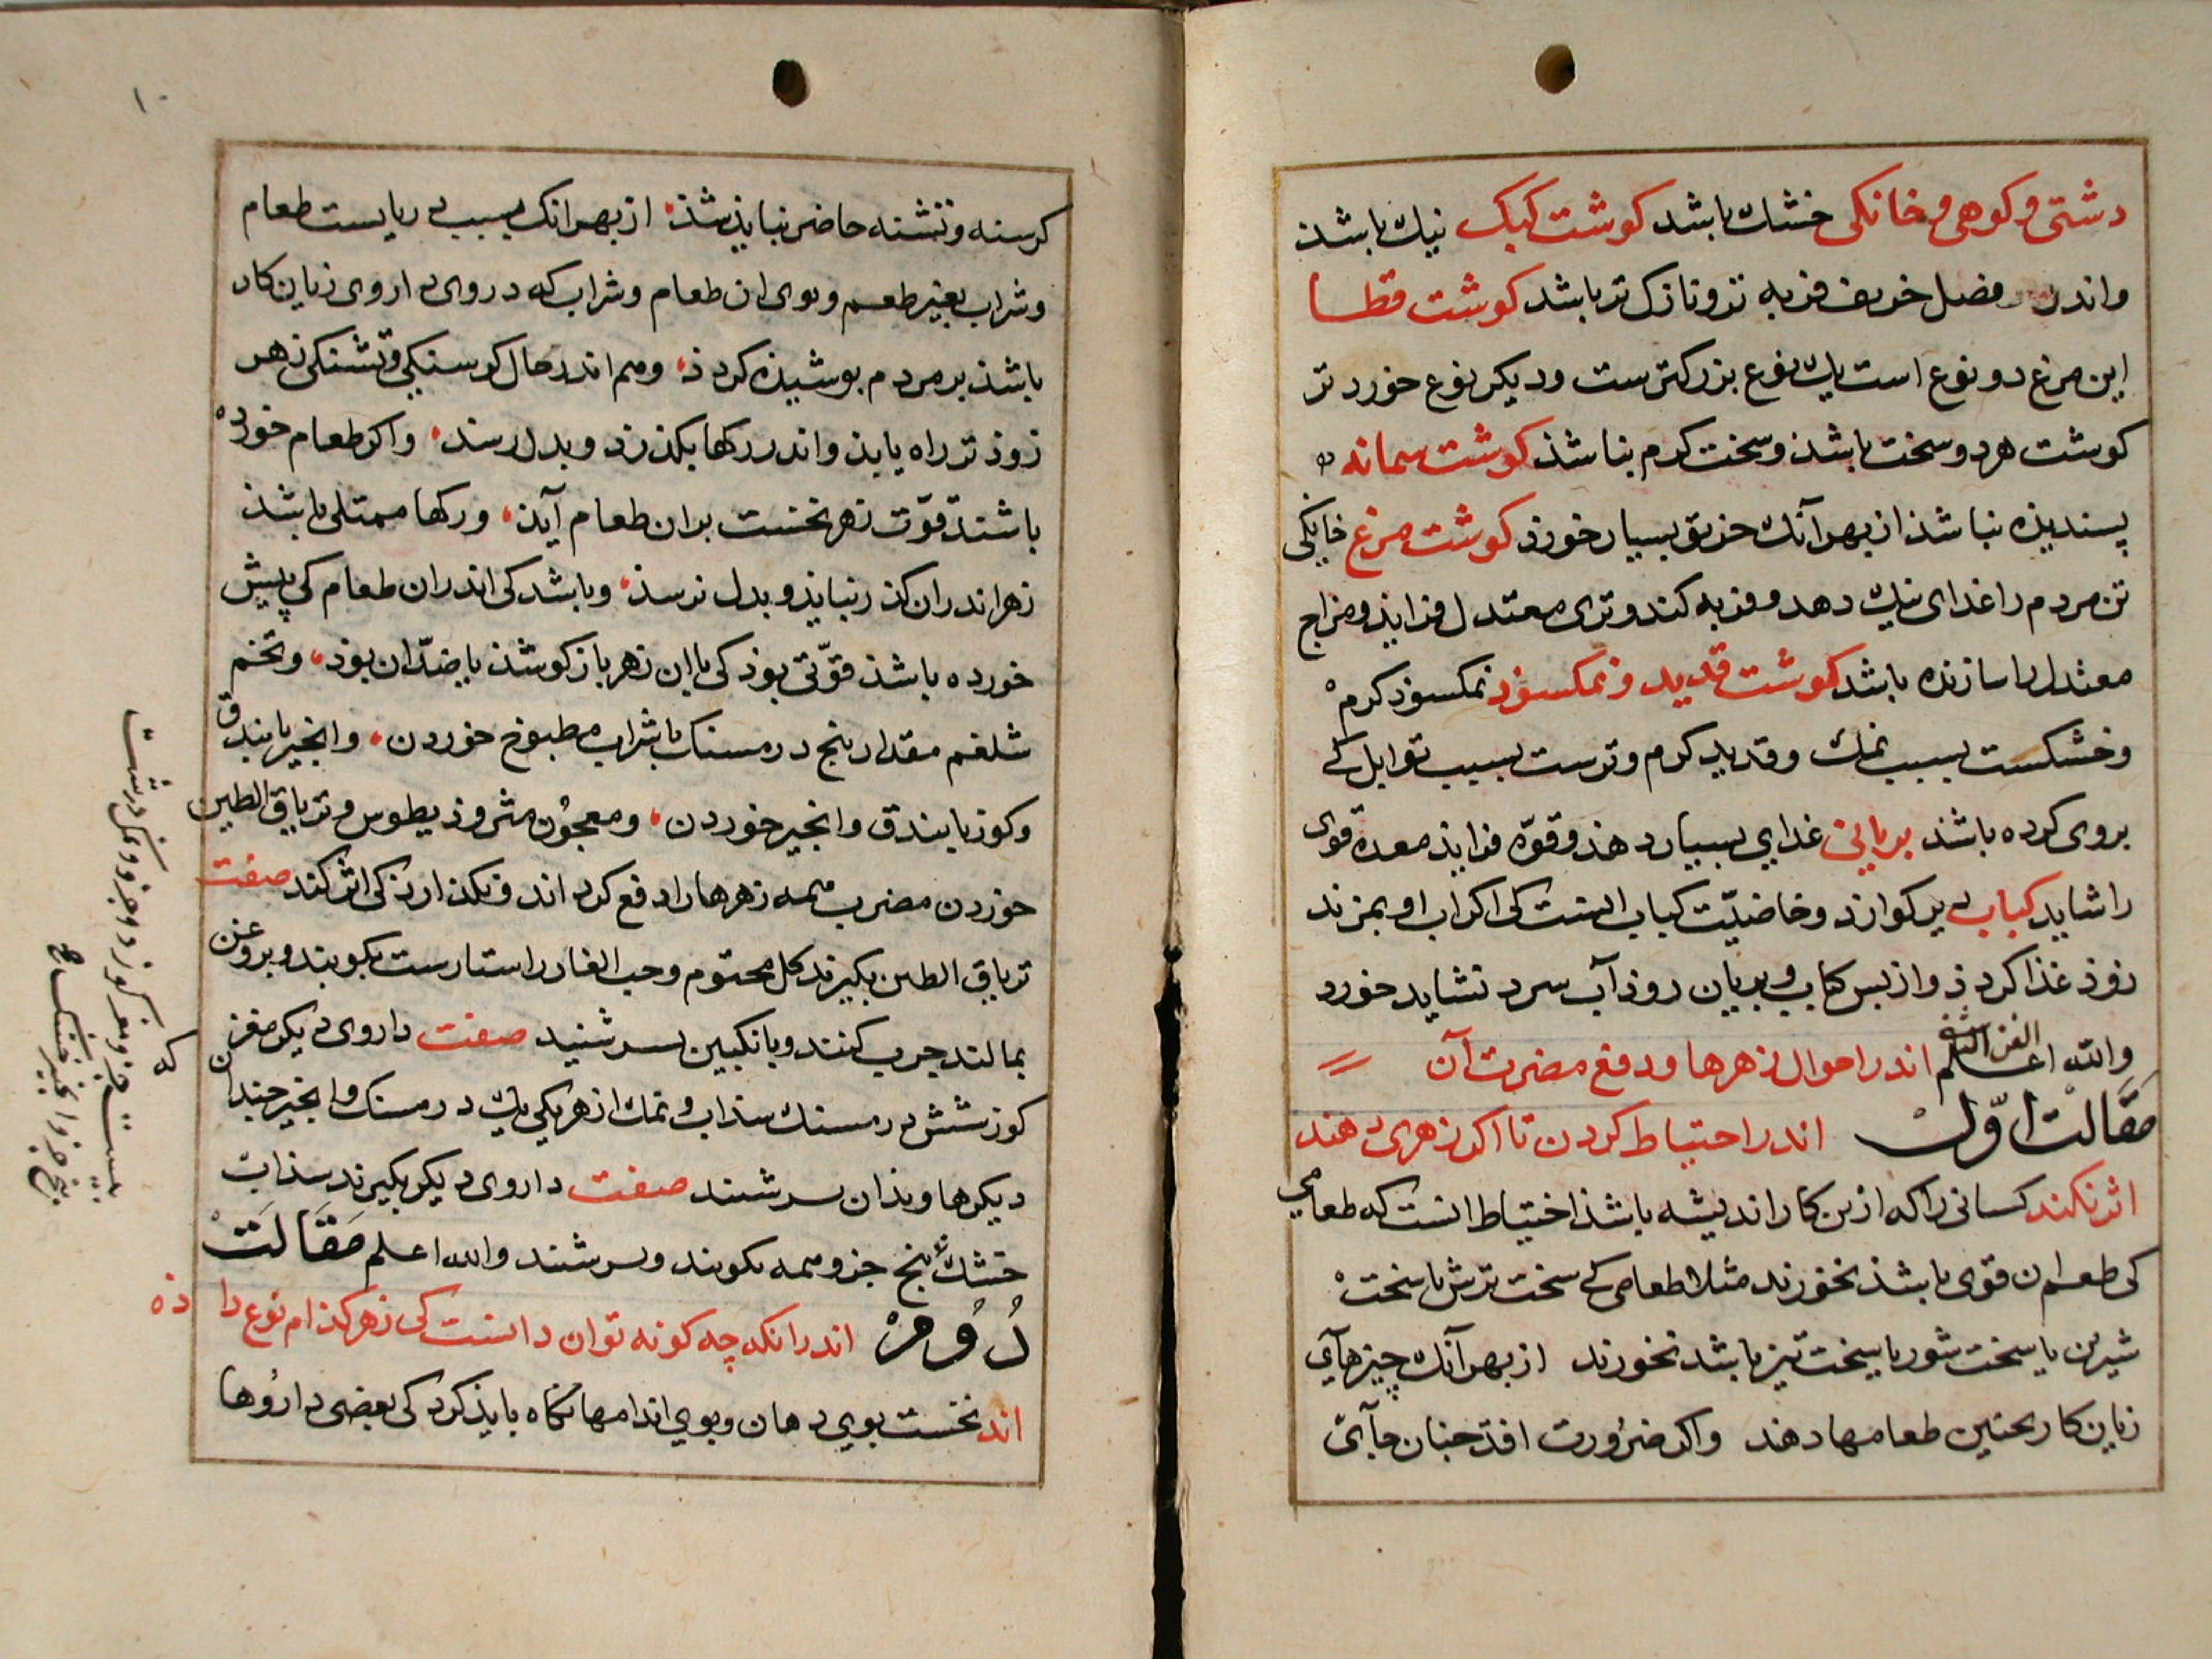 دشتی و کوهی و خانکی خشك باشد کوشت کبک نیك باشذ
واندر فصل خریف فربه تر و نازک تر باشد کوشت قطا
این مرغ دو نوع است یك نوع بزرکترست ودیکر نوع خورد تر
کوشت هردو سخت باشذ وسخت کرم نباشذ کوشت سمانه
پسندیذه نباشذ از بهر آنك خربق بسیار خورذ کوشت مرغ خانکی
تن مردم را غذای نیك دهد و فربه کند و تری معتدل فزایذ و مزاج
معتدل را سازنده باشد کوشت قدید و نمکسوذ نمکسوذ کرم
و خشکست بسبب نمك و قدید کرم و ترست بسبب توابل کی
بروی کرده باشذ بریانی غذایی بسیار دهذ و قوّه فزایذ معدۀ قوی
را شاید کباب دیر کوارذ و خاصیّت کباب انست کی اکر اب او بمزند
زوذ غذا کردذ و از بس کباب و بریان زوذ آب سرد نشاید خورد
والله اعلم الفن الثانی اندر احوال زهرها و دفع مضرت آن
مَقَالَت اوّل اندر احتیاط کردن تا اکر زهری دهند
اثر نکند کسانی را که ازین کار اندیشه باشذ احتیاط انست که طعامی
کی طعم ان قوی باشذ نخورند مثلا طعامی کی سخت ترش یا سخت
شیرین یا سخت شور یا سخت تیز باشد نخورند از بهر آنك چیزهای
زیان کار بچنین طعامها دهند واکر ضرورت افتذ چنان جآئی
۱۰
کرسنه و تشنه حاضر نبایذ شذ از بهر انک بسبب دربایست طعام
و شراب بغیر طعم و بوی ان طعام و شراب که در وی داروی زیان کار
باشذ بر مردم بوشیذه کردذ وهم اندر حال کرسنکی و تشنکی زهر
زوذ تر راه یابذ و اندر رکها بکذرذ و بدل رسد واکر طعام خورده
باشند قوّت زهر نخست بران طعام آیذ و رکها ممتلی باشذ
زهر اندران کذر نیابذ و بدل نرسذ و باشد کی اندران طعام کی پیش
خورده باشذ قوّتی بوذ کی با این زهر باز کوشذ یا ضدّ ان بوذ و تخم
شلغم مقدار پنج درمسنک با شراب مطبوخ خوردن و انجیر با بندق
وکوز با بندق وانجیر خوردن و معجون مثروذیطوس و تریاق الطین
خوردن مضرت همه زهرها را دفع کرداند و نکذارد کی اثر کند صفت
تریاق الطین بکیرند کل مختوم وحب الغار راستا راست بکوبند و بروغن
بمالند چرب کنند و بانکبین بسرشنید صفت داروی دیکر مغز
کوز شش درمسنك سذاب و نمك از هر یکی یك درمسنک و انجیر چندان که
دیکرها و بذان بسرشند صفت داروی دیکر بکیرند سذاب
خشك پنج جزو همه بکوبند و بسرشند والله اعلم مَقَالَتْ
دُوُمْ اندر انکه چه کونه توان دانست کی زهر کذام نوع داذه
اند نخست بوی دهان و بوی اندامها نکاه بایذ کرد کی بعضی داروها
بیست جزو و مغز کوز دو جزو و نمک درشت
پنج جزو و انجیر خشک